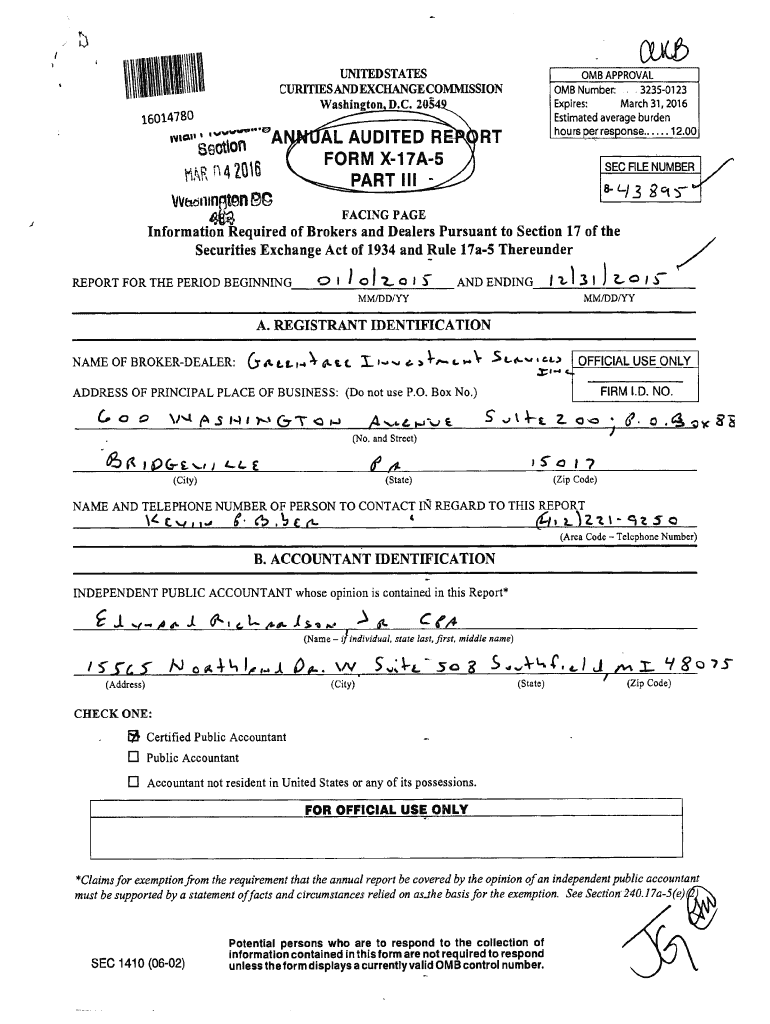 OKB
UNITED STATES
CURITIES AND EXCHANGE COMMISSION
Washington, D.C. 20549
OMB APPROVAL
OMB Number: 3235-0123
Expires: March 31, 2016
Estimated average burden
hours per response...... 12.00
16014780
Section
MAR 04 2016
Washington DC
ANNUAL AUDITED REPORT
FORM X-17A-5
PART III
SEC FILE NUMBER
8-43895
FACING PAGE
Information Required of Brokers and Dealers Pursuant to Section 17 of the
Securities Exchange Act of 1934 and Rule 17a-5 Thereunder
REPORT FOR THE PERIOD BEGINNING 01/0/2015 AND ENDING 12/31/2015
MM/DD/YY MM/DD/YY
A. REGISTRANT IDENTIFICATION
NAME OF BROKER-DEALER: Greentree Investment Services Inc
OFFICIAL USE ONLY
ADDRESS OF PRINCIPAL PLACE OF BUSINESS: (Do not use P.O. Box No.)
FIRM I.D. NO.
600 WASHINGTON AVENUE Suite 200; P.O. Box 88
(No. and Street)
BRIDGEVILLE PA 15017
(City) (State) (Zip Code)
NAME AND TELEPHONE NUMBER OF PERSON TO CONTACT IN REGARD TO THIS REPORT
Kevin P. Biber (412)221-9250
(Area Code – Telephone Number)
B. ACCOUNTANT IDENTIFICATION
INDEPENDENT PUBLIC ACCOUNTANT whose opinion is contained in this Report*
Edward Richardson Jr CPA
(Name – if individual, state last, first, middle name)
15565 Northland Dr. W Suite 508 Southfield, MI 48075
(Address) (City) (State) (Zip Code)
CHECK ONE:
Certified Public Accountant
Public Accountant
Accountant not resident in United States or any of its possessions.
FOR OFFICIAL USE ONLY
*Claims for exemption from the requirement that the annual report be covered by the opinion of an independent public accountant
must be supported by a statement of facts and circumstances relied on as the basis for the exemption. See Section 240.17a-5(e)(2)
SEC 1410 (06-02)
Potential persons who are to respond to the collection of
information contained in this form are not required to respond
unless the form displays a currently valid OMB control number.
JG